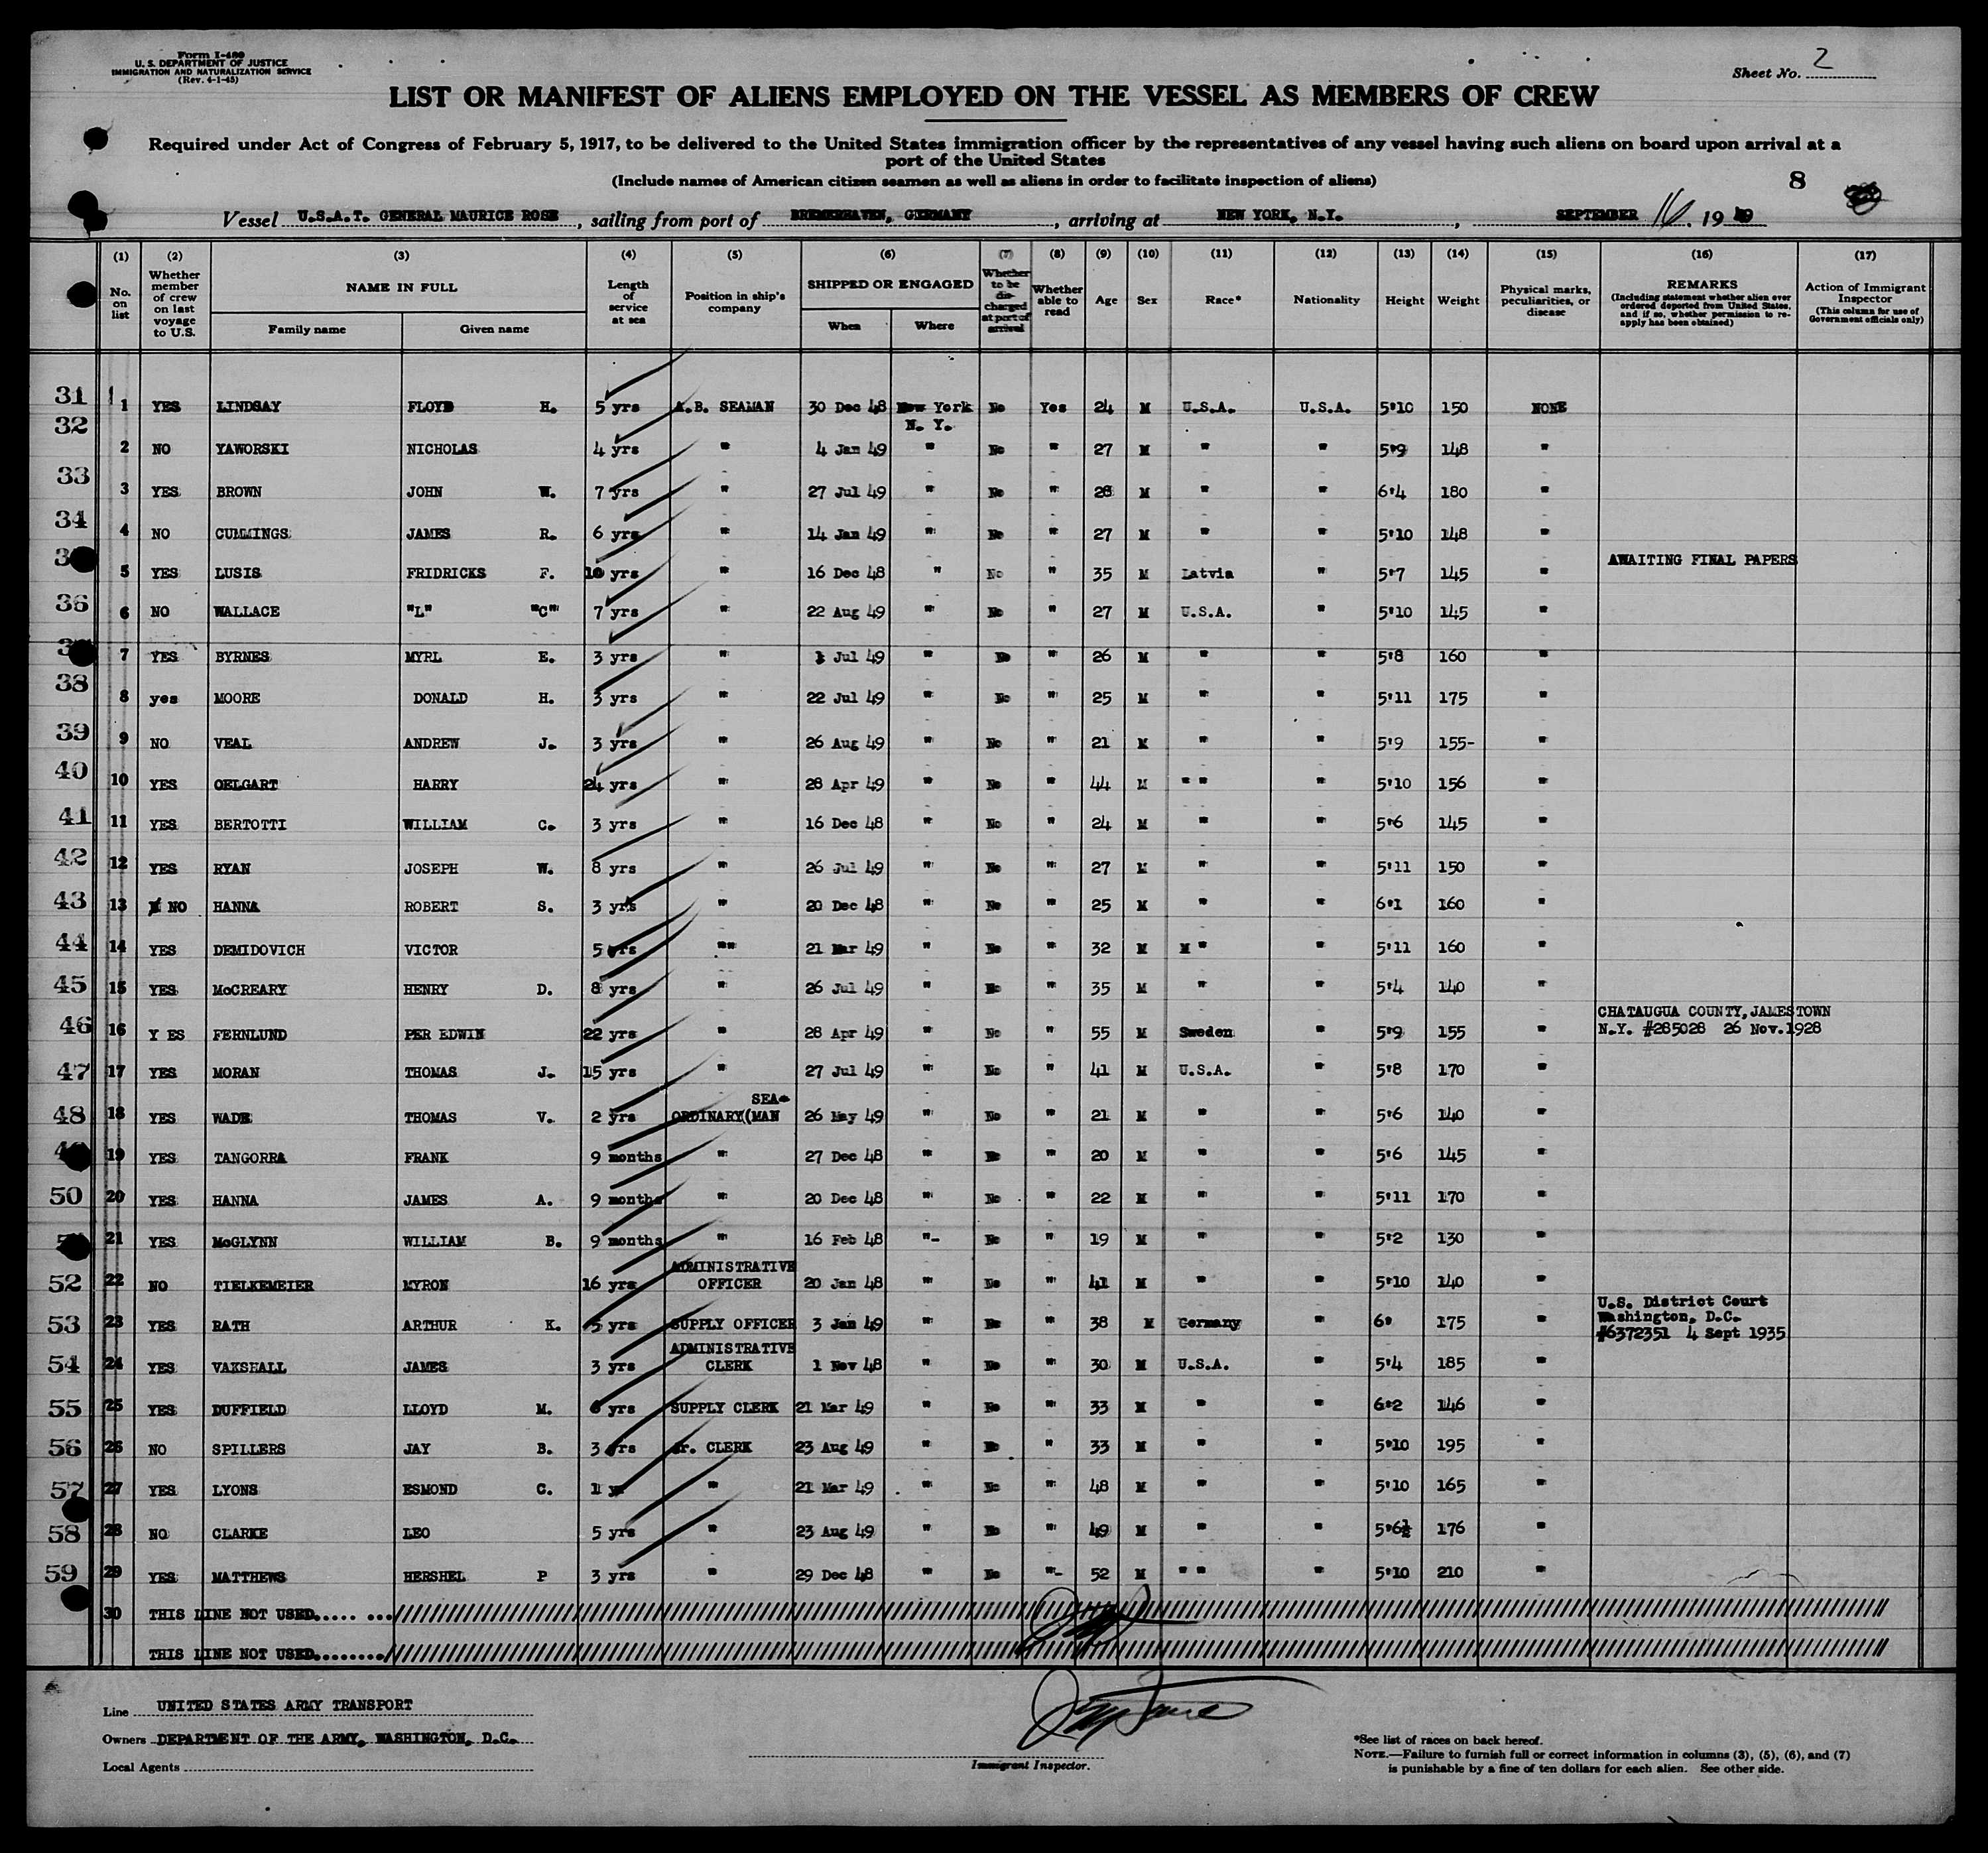 Form I-480
U. S. DEPARTMENT OF JUSTICE
IMMIGRATION AND NATURALIZATION SERVICE
(Rev. 4-1-45)
Sheet No. 2
LIST OR MANIFEST OF ALIENS EMPLOYED ON THE VESSEL AS MEMBERS OF CREW
Required under Act of Congress of February 5, 1917, to be delivered to the United States immigration officer by the representatives of any vessel having such aliens on board upon arrival at a
port of the United States
(Include names of American citizen seamen as well as aliens in order to facilitate inspection of aliens)
8
Vessel U.S.A.T. GENERAL MAURICE ROSE, sailing from port of BREMERHAVEN, GERMANY, arriving at NEW YORK, N.Y., SEPTEMBER 16, 1949
(1) (2) (3) (4) (5) (6) (7) (8) (9) (10) (11) (12) (13) (14) (15) (16) (17)
No. on list
Whether member of crew on last voyage to U.S.
NAME IN FULL
Family name Given name
Length of service at sea
Position in ship's company
SHIPPED OR ENGAGED
When Where
Whether to be discharged at port of arrival
Whether able to read
Age Sex Race* Nationality Height Weight
Physical marks, peculiarities, or disease
REMARKS
(Including statement whether alien ever ordered deported from United States, and if so, whether permission to reapply has been obtained)
Action of Immigrant Inspector
(This column for use of Government officials only)
31 1 YES LINDSAY FLOYD H. 5 yrs A.B. SEAMAN 30 Dec 48 New York No Yes 24 M U.S.A. U.S.A. 5'10 150 NONE
N. Y.
32 2 NO YAWORSKI NICHOLAS 4 yrs " 4 Jan 49 " No " 27 M " " 5'9 148 "
33 3 YES BROWN JOHN W. 7 yrs " 27 Jul 49 " No " 28 M " " 6'4 180 "
34 4 NO CUMMINGS JAMES R. 6 yrs " 14 Jan 49 " No " 27 M " " 5'10 148 "
5 YES LUSIS FRIDRICKS F. 10 yrs " 16 Dec 48 " No " 35 M Latvia " 5'7 145 " AWAITING FINAL PAPERS
36 6 NO WALLACE "L" "C" 7 yrs " 22 Aug 49 " No " 27 M U.S.A. " 5'10 145 "
7 YES BYRNES MYRL E. 3 yrs " 1 Jul 49 " No " 26 M " " 5'8 160 "
38 8 yes MOORE DONALD H. 3 yrs " 22 Jul 49 " No " 25 M " " 5'11 175 "
39 9 NO VEAL ANDREW J. 3 yrs " 26 Aug 49 " No " 21 M " " 5'9 155- "
40 10 YES OELGART HARRY 24 yrs " 28 Apr 49 " No " 44 M " " " 5'10 156 "
41 11 YES BERTOTTI WILLIAM C. 3 yrs " 16 Dec 48 " No " 24 M " " 5'6 145 "
42 12 YES RYAN JOSEPH W. 8 yrs " 26 Jul 49 " No " 27 M " " 5'11 150 "
43 13 NO HANNA ROBERT S. 3 yrs " 20 Dec 48 " No " 25 M " " 6'1 160 "
44 14 YES DEMIDOVICH VICTOR 5 yrs "" 21 Mar 49 " No " 32 M M " " 5'11 160 "
45 15 YES McCREARY HENRY D. 8 yrs " 26 Jul 49 " No " 35 M " " 5'4 140 "
CHATAUGUA COUNTY, JAMESTOWN
46 16 Y ES FERNLUND PER EDWIN 22 yrs " 28 Apr 49 " No " 55 M Sweden " 5'9 155 " N.Y. #285028 26 Nov. 1928
47 17 YES MORAN THOMAS J. 15 yrs " 27 Jul 49 " No " 41 M U.S.A. " 5'8 170 "
SEA-
48 18 YES WADE THOMAS V. 2 yrs ORDINARY(MAN 26 May 49 " No " 21 M " " 5'6 140 "
19 YES TANGORRA FRANK 9 months " 27 Dec 48 " No " 20 M " " 5'6 145 "
50 20 YES HANNA JAMES A. 9 months " 20 Dec 48 " No " 22 M " " 5'11 170 "
21 YES McGLYNN WILLIAM B. 9 months " 16 Feb 48 "- No " 19 M " " 5'2 130 "
ADMINISTRATIVE
52 22 NO TIELKEMEIER MYRON 16 yrs OFFICER 20 Jan 48 " No " 41 M " " 5'10 140 "
U.S. District Court
Washington, D.C.
53 23 YES RATH ARTHUR K. 5 yrs SUPPLY OFFICER 3 Jan 49 " No " 38 M Germany " 6' 175 " #6372351 4 Sept 1935
ADMINISTRATIVE
54 24 YES VAKSHALL JAMES 3 yrs CLERK 1 Nov 48 " No " 30 M U.S.A. " 5'4 185 "
55 25 YES DUFFIELD LLOYD M. 6 yrs SUPPLY CLERK 21 Mar 49 " No " 33 M " " 6'2 146 "
56 26 NO SPILLERS JAY B. 3 yrs Jr. CLERK 23 Aug 49 " No " 33 M " " 5'10 195 "
57 27 YES LYONS ESMOND C. 1 " 21 Mar 49 " No " 48 M " " 5'10 165 "
58 28 NO CLARKE LEO 5 yrs " 23 Aug 49 " No " 49 M " " 5'6½ 176 "
59 29 YES MATTHEWS HERSHEL P 3 yrs " 29 Dec 48 " No "- 52 M " " " 5'10 210 "
30 THIS LINE NOT USED
THIS LINE NOT USED
Line UNITED STATES ARMY TRANSPORT
Owners DEPARTMENT OF THE ARMY, WASHINGTON, D.C.
Local Agents
Immigrant Inspector.
*See list of races on back hereof.
NOTE.—Failure to furnish full or correct information in columns (3), (5), (6), and (7)
is punishable by a fine of ten dollars for each alien. See other side.